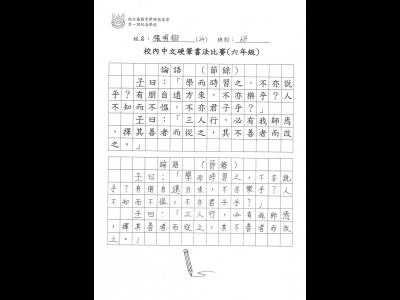 (24)
班別: 6B
校內中文硬筆書法比賽(六年級)
論語 (節錄)
子曰:「學而時習之,不亦說
乎?有朋自遠方來,不亦樂乎?人
不知而不慍,不亦君子乎?」
子曰:「三人行,必有我師焉
,擇其善者而從之,其不善者而改
之。」
論語 (節錄)
子曰:「學而時習之,不亦說
乎?有朋自遠方來,不亦樂乎?人
不知而不慍,不亦君子乎?」
子曰:「三人行,必有我師焉
,擇其善者而從之,其不善者而改
之。」